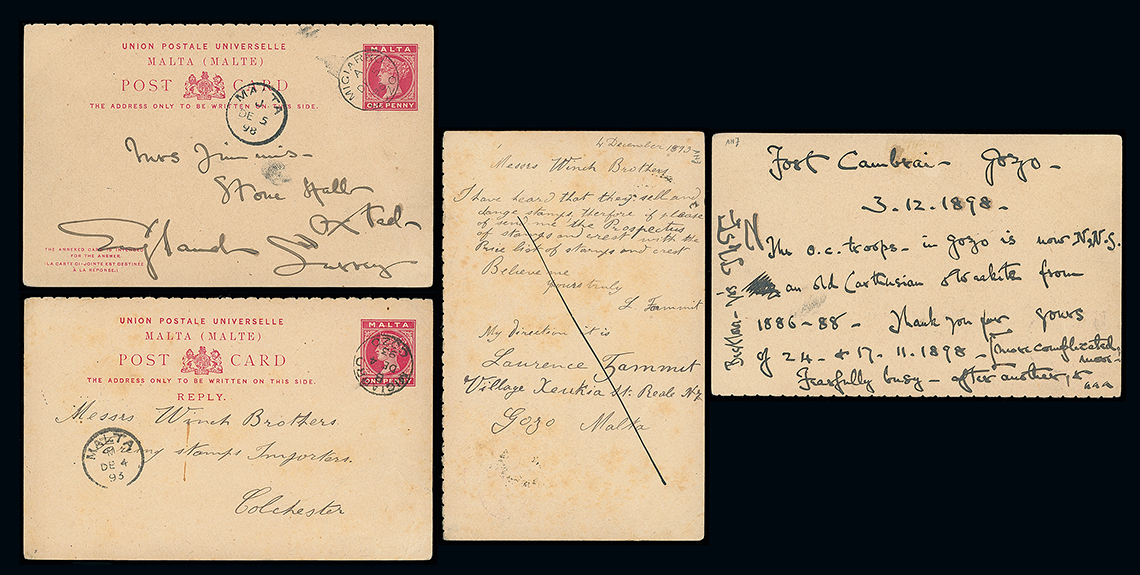 UNION POSTALE UNIVERSELLE
MALTA (MALTE)
POST CARD
THE ADDRESS ONLY TO BE WRITTEN ON THIS SIDE.
MALTA
ONE PENNY
MALTA
DE 5
98
Mrs Jimmis-
Stone Hall-
Oxted-
Surrey
England
THE ANNEXED CARD IS INTENDED
FOR THE ANSWER.
(LA CARTE CI-JOINTE EST DESTINÉE
À LA RÉPONSE.)
UNION POSTALE UNIVERSELLE
MALTA (MALTE)
POST CARD
THE ADDRESS ONLY TO BE WRITTEN ON THIS SIDE.
REPLY.
MALTA
ONE PENNY
DE 4
93
MALTA
DE 4
93
Messrs Winch Brothers
stamps Importers.
Colchester
4 December 1893
Messrs Winch Brothers
I have heard that they sell and
change stamps, therfore if please
of send me the Prospectus
of stamps and crest with the
Price list of stamps and crest
Believe me
yours truly
L. Tammit
My direction it is
Laurence Tammit
Village Xeukia St. Reale
Gozo Malta
Fort Cambrai- Gozo-
3.12.1898-
The O.C. troops- in Gozo is now N.N.G.
an old Carthusian from
1886-88- Thank you for yours
of 24- & 17.11.1898- more complicated
Fearfully busy- after another